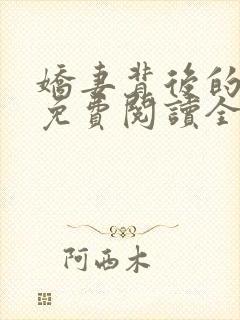 嬌妻背後的
免費閱讀全
阿西木